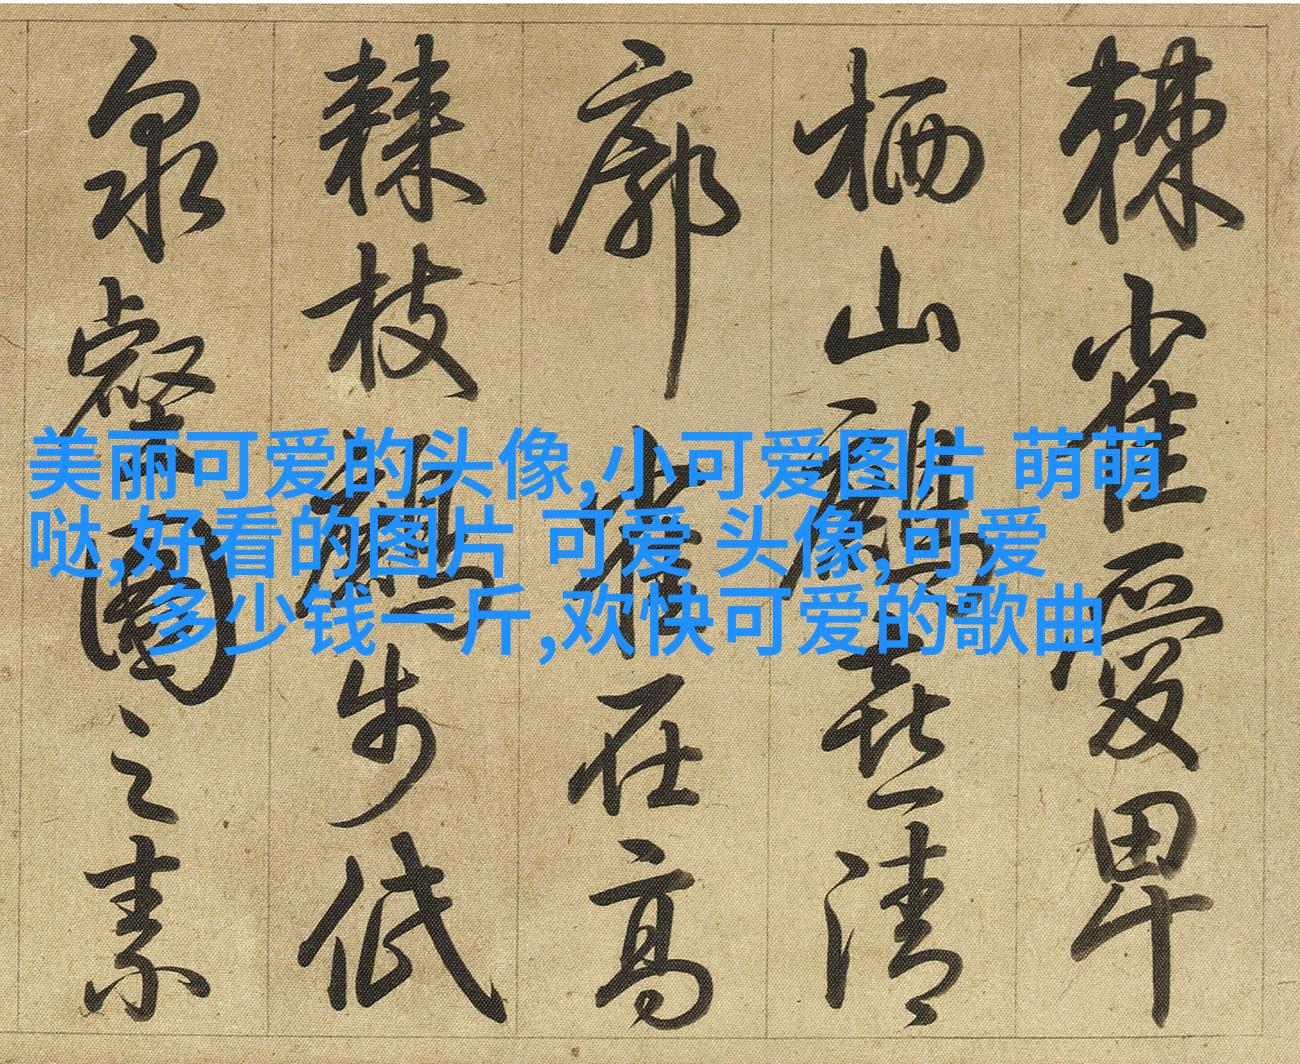 美丽可爱的头像,小可爱图片 萌萌
哒,好看的图片 可爱 头像,可爱
多少钱一斤,欢快可爱的歌曲
棘雀愛卑
栖山喜清
廓在高
棘枝步低
泉壑之素